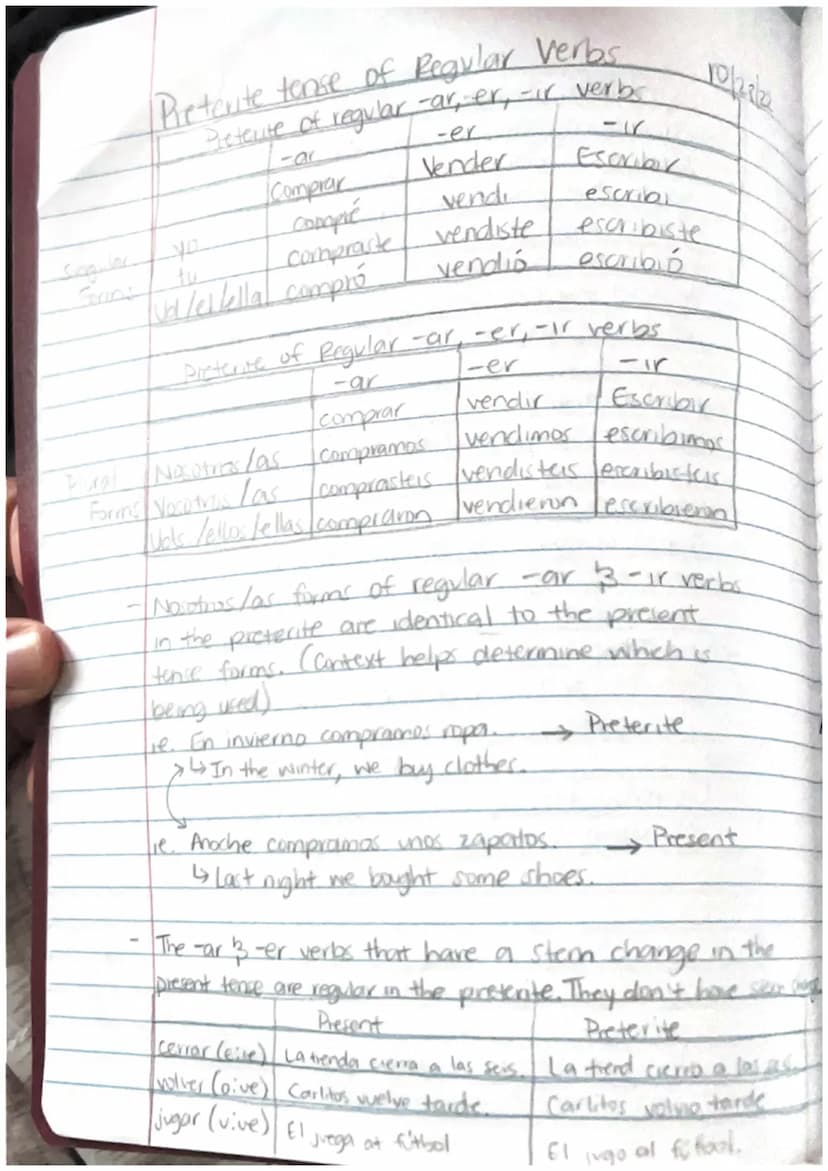 Preterite tense of Regular Verbs
Preterite of regular -ar, -er, -ir verbs
-ar -er -ir
comprar Vender Escribir
Singular forms
yo compré vendi escribi
tu compraste vendiste escribiste
Ud/el/ella compró vendió escribió
Preterite of Regular -ar, -er, -ir verbs
-ar -er -ir
comprar vendir Escribir
Plural Forms
Nosotros/as compramos vendimos escribimos
Vosotros/as comprasteis vendisteis escribisteis
Uds/ellos/ellas compraron vendieron escribieron
- Nosotros/as forms of regular -ar & -ir verbs
in the preterite are identical to the present
tense forms. (Context helps determine which is
being used)
i.e. En invierno compramos ropa. → Preterite
↳ In the winter, we buy clothes.
i.e. Anoche compramos unos zapatos. → Present
↳ Last night we bought some shoes.
- The -ar & -er verbs that have a stem change in the
present tence are regular in the preterite. They don't have
Present Preterite
cerrar (e:ie) La tienda cierra a las seis. La tiend cierro a las
volver (o:ue) Carlitos vuelve tarde. Carlitos volvio tarde
jugar (u:ue) El juega at fútbol El jugo al fútbol.